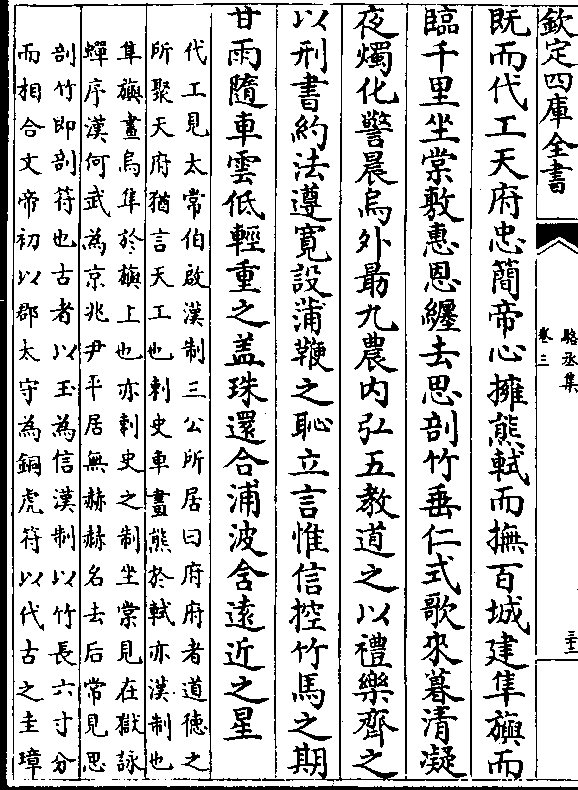 欽定四庫全書
駱丞集
卷三
既而代工天府忠簡帝心擁熊軾而撫百城建隼旟而
臨千里坐棠敷惠恩纏去思剖竹垂仁式歌來暮清凝
夜燭化警晨烏外最九農内弘五教道之以禮樂齊之
以刑書約法遵寛設蒲鞭之恥立言惟信控竹馬之期
甘雨隨車雲低輕重之盖珠還合浦波含遠近之星
代工見太常伯啟漢制三公所居曰府府者道德之
所聚天府猶言天工也刺史車畫熊於軾亦漢制也
隼旟畫鳥隼於旟上也亦刺史之制坐棠見在獄詠
蟬序漢何武為京兆尹平居無赫赫名去后常見思
剖竹即剖符也古者以玉為信漢制以竹長六寸分
而相合文帝初以郡太守為銅虎符以代古之圭璋